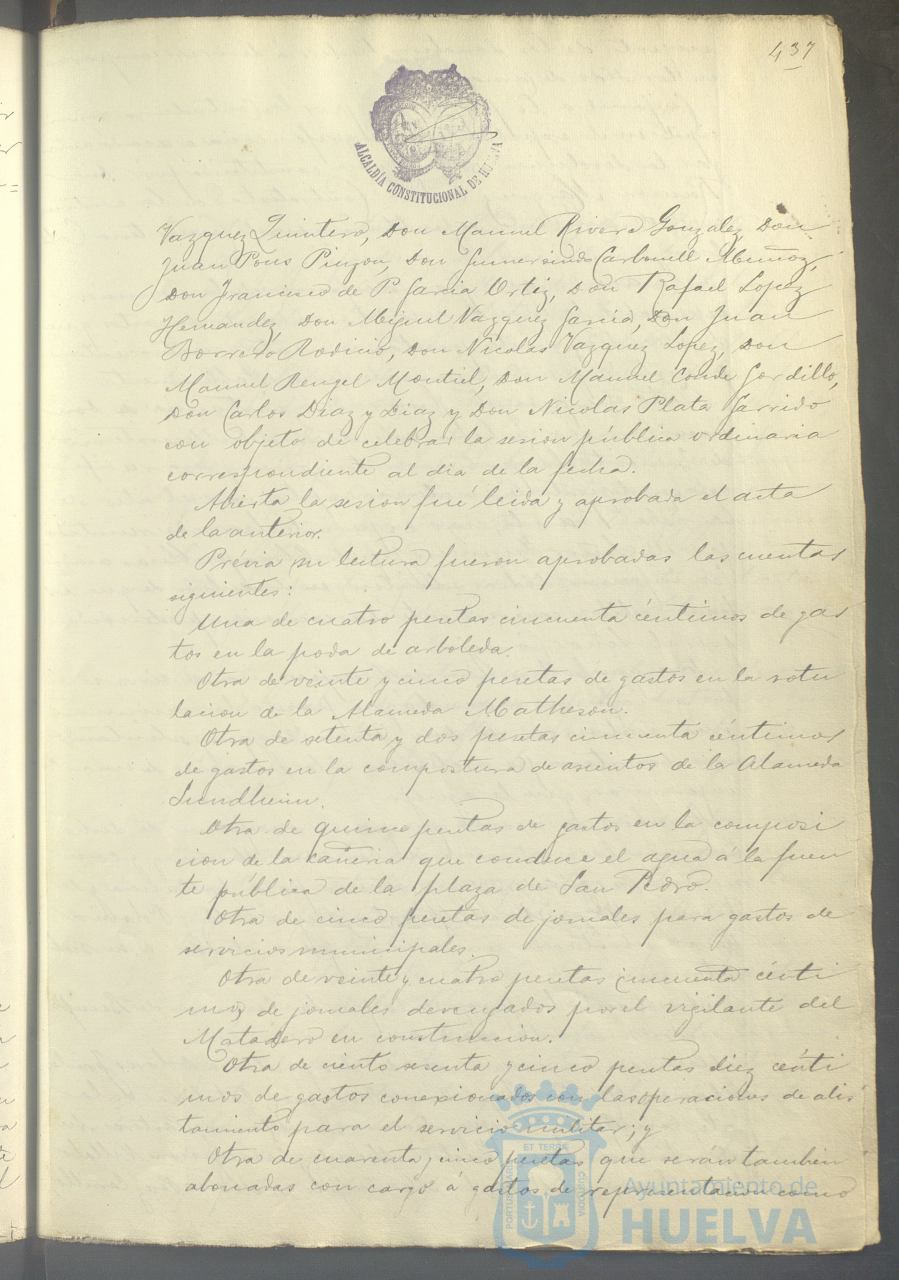 437
ALCALDÍA CONSTITUCIONAL DE HUELVA
Vazquez Quintero, Don Manuel Rivera Gonzalez, Don
Juan Pons Pinzon, Don Gumersindo Carbonell Muñoz,
Don Francisco de P. Garcia Ortiz, Don Rafael Lopez
Hernandez, Don Miguel Vazquez Garcia, Don Juan
Borrero Rodicio, Don Nicolas Vazquez Lopez, Don
Manuel Rengel Montiel, Don Manuel Conde Gordillo,
Don Carlos Diaz y Diaz y Don Nicolas Plata Garrido
con objeto de celebrar la sesion pública ordinaria
correspondiente al dia de la fecha.
Abierta la sesion fué leida y aprobada el acta
de la anterior.
Prévia su lectura fueron aprobadas las cuentas
siguientes:
Una de cuatro pesetas cincuenta céntimos de gas
tos en la poda de arboleda.
Otra de veinte y cinco pesetas de gastos en la rotu
lacion de la Alameda Matheson.
Otra de setenta y dos pesetas cincuenta céntimos
de gastos en la compostura de asientos de la Alameda
Sundheim.
Otra de quince pesetas de gastos en la composi
cion de la cañeria que conduce el agua á la fuen
te pública de la plaza de San Pedro.
Otra de cinco pesetas de jornales para gastos de
servicios municipales.
Otra de veinte y cuatro pesetas cincuenta cénti
mos de jornales devengados por el vigilante del
Matadero en construccion.
Otra de ciento sesenta y cinco pesetas diez cénti
mos de gastos conexionados con las operaciones de alis
tamiento para el servicio militar; y
Otra de cuarenta y cinco pesetas que serán tambien
abonadas con cargo á gastos de representacion como
ET TERRE
PORTUS MARIS
CUSTODIA
Ayuntamiento de
HUELVA